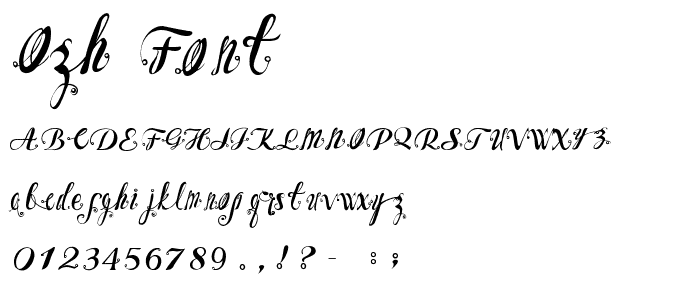 Ozh Font
ABCDEFGHIJKLMNOPQRSTUVWXYZ
abcdefghijklmnopqrstuvwxyz
0123456789.,!?- :;